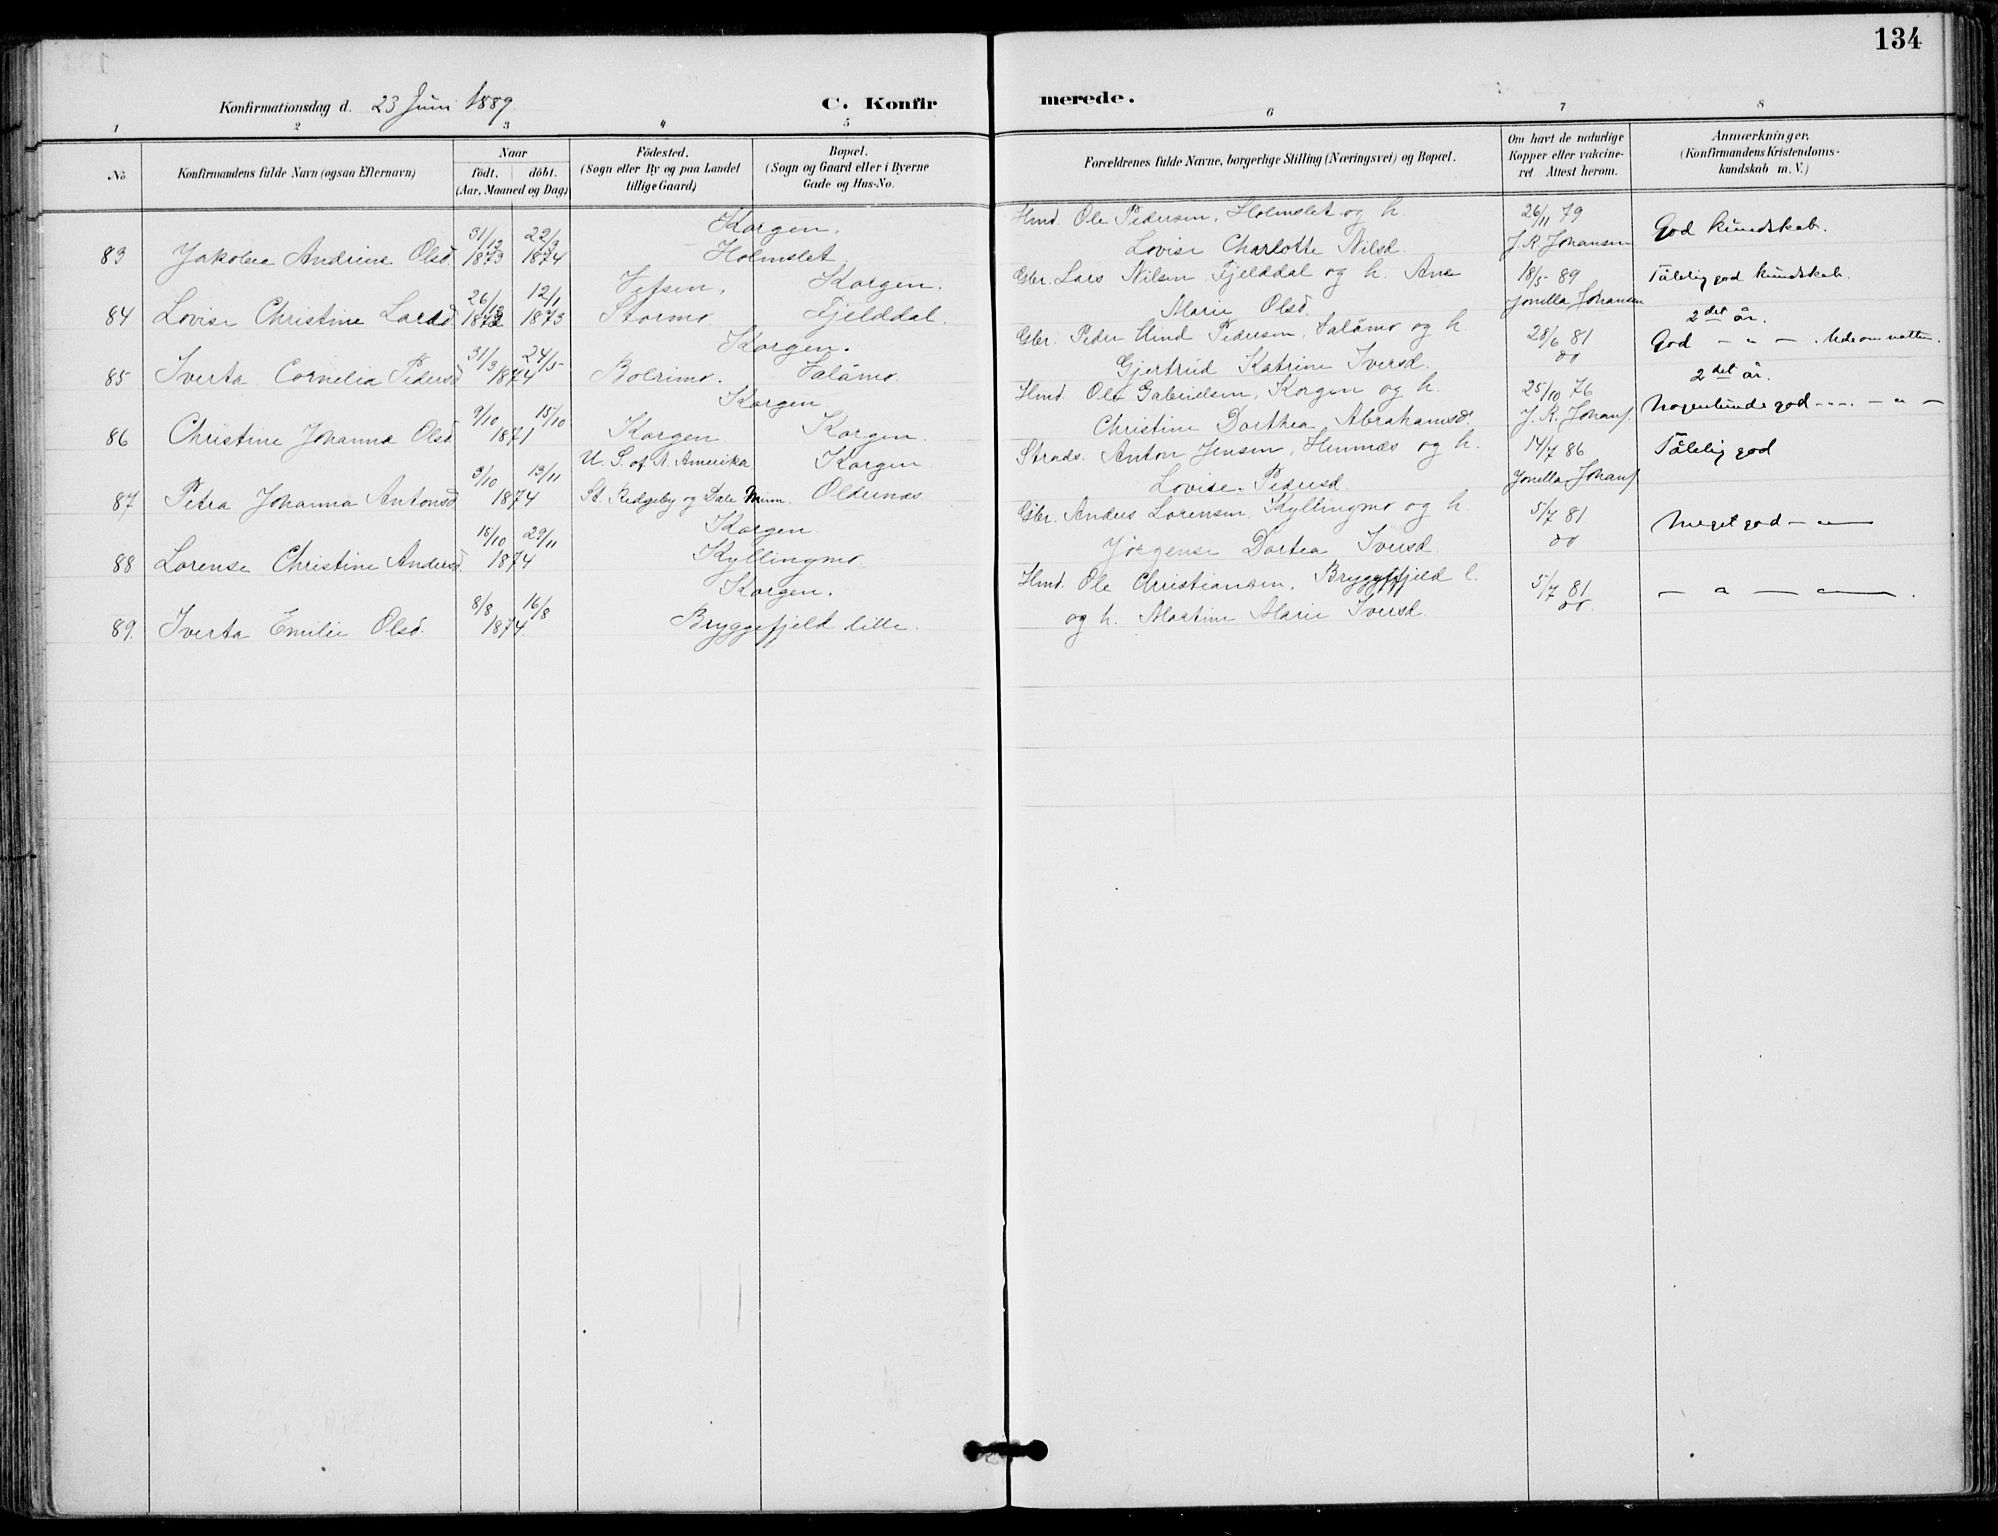 134
Konfirmationsdag d. 23 Juni 1889.
C. Konfirmerede.
1 2 3 4 5 6 7 8
No
Konfirmandens fulde Navn (ogsaa Efternavn)
Naar
födt. döbt.
(Aar, Maaned og Dag)
Födested.
(Sogn eller By og paa Landet
tillige Gaard)
Bopæl.
(Sogn og Gaard eller i Byerne
Gade og Hus-No.
Forældrenes fulde Navne, borgerlige Stilling (Næringsvei) og Bopæl.
Om havt de naturlige
Kopper eller vakcine-
ret. Attest herom.
Anmærkninger.
(Konfirmandens Kristendoms-
kundskab m. V.)
31/12 22/3 Korgen. Hmd. Ole Pedersen, Holmslet og h. 26/11 79 God kundskab.
83 Jakobea Andrine Olsd. 1873 1874 Holmslet. Lovise Charlotte Nilsd. J. R. Johansen
26/12 12/1 Vefsen, Korgen. Gbr. Lars Nilsen Fjelddal og h. Ane 18/5 89 Tålelig god kundskab.
84 Lovise Christine Larsd. 1872 1873 Stormo Fjelddal. Marie Olsd. Jonella Johansen 2det år.
31/3 24/5 Korgen. Gbr. Peder Hind Pedersen, Salåmo og h. 28/6 81 God — " —
85 Iverta Cornelia Pedersd 1874 Bolrimo. Salåmo. Gjertrud Katrine Iversd. do 2det år.
9/10 15/10 Korgen. Hmd. Ole Gabrielsen, Korgen og h. 25/10 76 Nogenlunde god — " —
86 Christine Johanna Olsd 1871 Korgen Korgen. Christine Dorthea Abrahamsd. J. R. Johans.
3/10 13/11 U. S. of N. Amerika Korgen. Strads. Anton Jensen, Hemnæs og h. 14/7 86 Tålelig god
87 Petra Johanna Antonsd 1874 St. Ridgeby og Dale Minn. Oldernæs. Lovise Pedersd. Jonella Johans.
15/10 29/11 Korgen. Gbr. Anders Lorensen, Kyllingmo og h. 5/7 81 Meget god — " —
88 Lorense Christine Andersd 1874 Kyllingmo. Jørgense Dortea Iversd. do
8/8 16/8 Korgen. Hmd. Ole Christiansen, Bryggefjeld l. 5/7 81 — " — " — .
89. Iverta Emilie Olsd. 1874. Bryggefjeld lille. og h. Martine Marie Iversd. do.